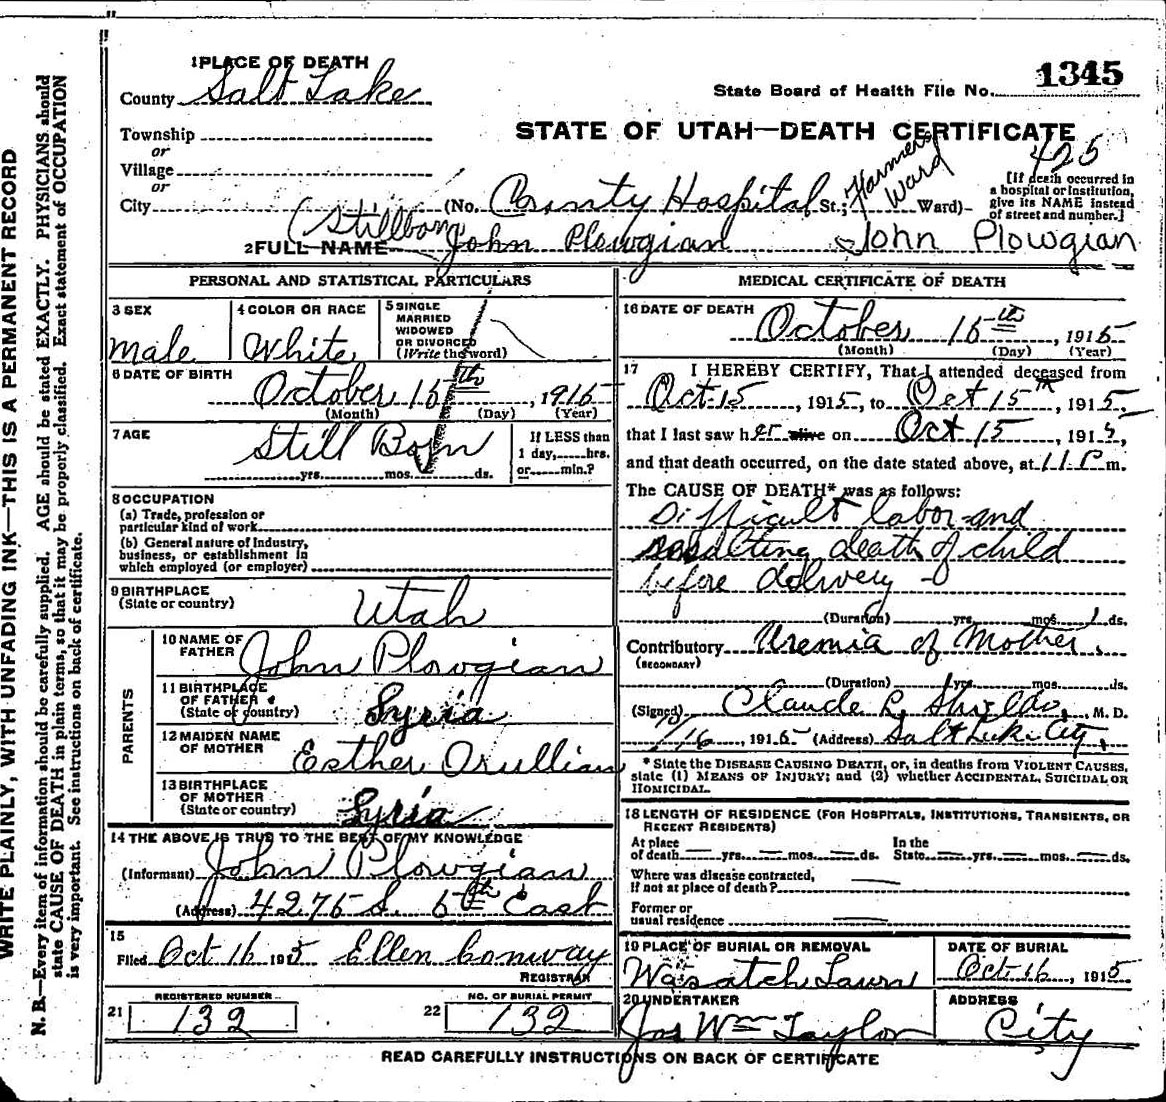 WRITE PLAINLY, WITH UNFADING INK—THIS IS A PERMANENT RECORD
N. B.—Every item of information should be carefully supplied. AGE should be stated EXACTLY. PHYSICIANS should
state CAUSE OF DEATH in plain terms, so that it may be properly classified. Exact statement of OCCUPATION
is very important. See instructions on back of certificate.
1 PLACE OF DEATH
County Salt Lake
State Board of Health File No. 1345
Township
or
STATE OF UTAH—DEATH CERTIFICATE
425
Village
or
City (No. County Hospital St.; Farmers Ward Ward)
[If death occurred in
a hospital or institution,
give its NAME instead
of street and number.]
(Stillborn)
2 FULL NAME John Plowgian John Plowgian
PERSONAL AND STATISTICAL PARTICULARS
3 SEX
male
4 COLOR OR RACE
White
5 SINGLE
MARRIED
WIDOWED
OR DIVORCED
(Write the word)
6 DATE OF BIRTH
October 15th, 1915
(Month) (Day) (Year)
7 AGE
Still Born
yrs. mos. ds.
If LESS than
1 day, hrs.
or min.?
8 OCCUPATION
(a) Trade, profession or
particular kind of work
(b) General nature of Industry,
business, or establishment in
which employed (or employer)
9 BIRTHPLACE
(State or country)
Utah
PARENTS
10 NAME OF
FATHER
John Plowgian
11 BIRTHPLACE
OF FATHER
(State of country)
Syria
12 MAIDEN NAME
OF MOTHER
Esther Orullian
13 BIRTHPLACE
OF MOTHER
(State or country)
Syria
14 THE ABOVE IS TRUE TO THE BEST OF MY KNOWLEDGE
(Informant) John Plowgian
(Address) 4275 S. 5th East
15
Filed Oct 16 1915 Ellen Conway
REGISTRAR
21 REGISTERED NUMBER
132
22 NO. OF BURIAL PERMIT
132
MEDICAL CERTIFICATE OF DEATH
16 DATE OF DEATH
October 15th, 1915
(Month) (Day) (Year)
17 I HEREBY CERTIFY, That I attended deceased from
Oct 15, 1915, to Oct 15th, 1915,
that I last saw her alive on Oct 15, 1915,
and that death occurred, on the date stated above, at 11 P m.
The CAUSE OF DEATH* was as follows:
Difficult labor and
resulting death of child
before delivery
(Duration) yrs. mos. 1 ds.
Contributory Uremia of Mother.
(SECONDARY)
(Duration) yrs. mos. ds.
(Signed) Claude L. Shields, M. D.
16, 1915 (Address) Salt Lake City,
* State the DISEASE CAUSING DEATH, or, in deaths from VIOLENT CAUSES,
state (1) MEANS OF INJURY; and (2) whether ACCIDENTAL, SUICIDAL OR
HOMICIDAL.
18 LENGTH OF RESIDENCE (FOR HOSPITALS, INSTITUTIONS, TRANSIENTS, OR
RECENT RESIDENTS)
At place
of death yrs. mos. ds.
In the
State yrs. mos. ds.
Where was disease contracted,
If not at place of death?
Former or
usual residence
19 PLACE OF BURIAL OR REMOVAL
Wasatch Lawn
DATE OF BURIAL
Oct 16, 1915
20 UNDERTAKER
Jos Wm Taylor
ADDRESS
City
READ CAREFULLY INSTRUCTIONS ON BACK OF CERTIFICATE